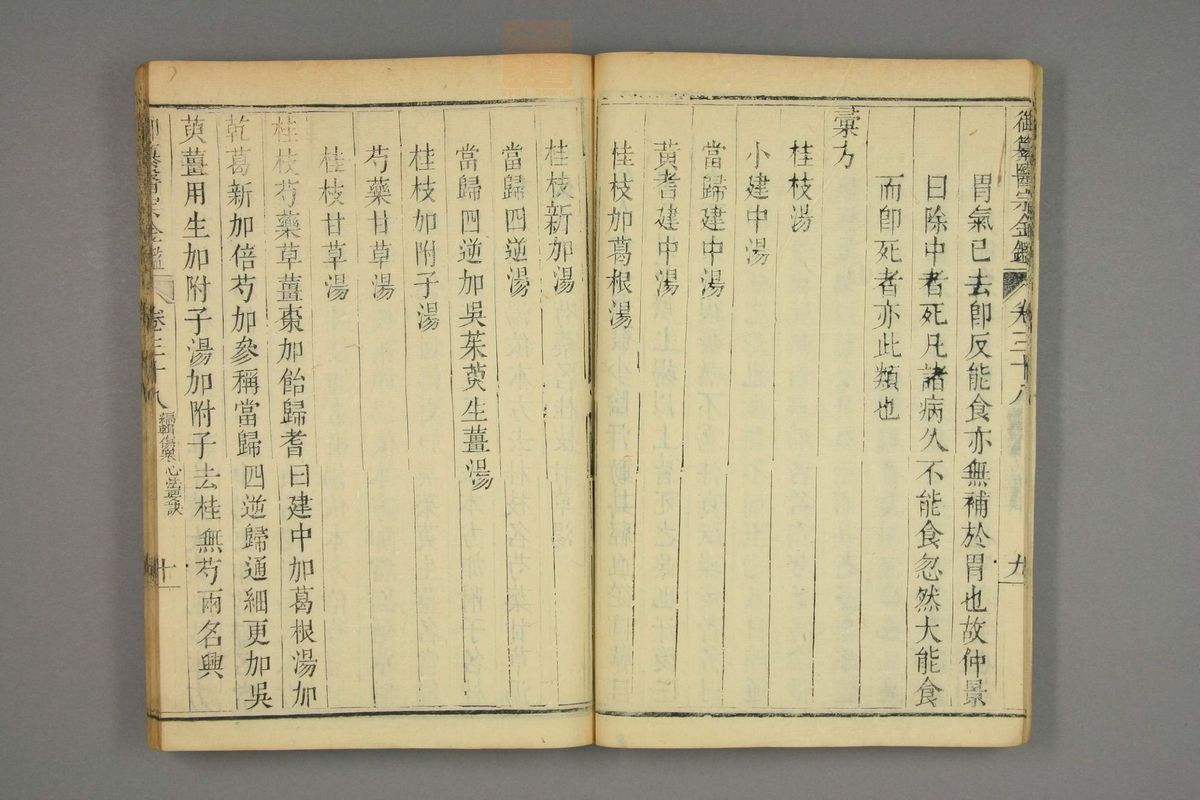 御纂醫宗金鑑 卷三十八 九
胃氣已去卽反能食亦無補於胃也故仲景
曰除中者死凡諸病久不能食忽然大能食
而卽死者亦此類也
彙方
桂枝湯
小建中湯
當歸建中湯
黃耆建中湯
桂枝加葛根湯
桂枝新加湯
當歸四逆湯
當歸四逆加吳茱萸生薑湯
桂枝加附子湯
芍藥甘草湯
桂枝甘草湯
桂枝芍藥草薑棗加飴歸耆曰建中加葛根湯加
乾葛新加倍芍加參稱當歸四逆歸通細更加吳
萸薑用生加附子湯加附子去桂無芍兩名興
御纂醫宗金鑑 卷三十八 編輯傷寒心法要訣 十